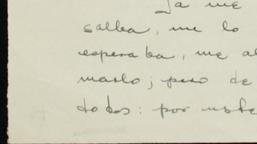 Ya me
salba, me lo
esperaba, me al
marlo; pero de
todos: por uste